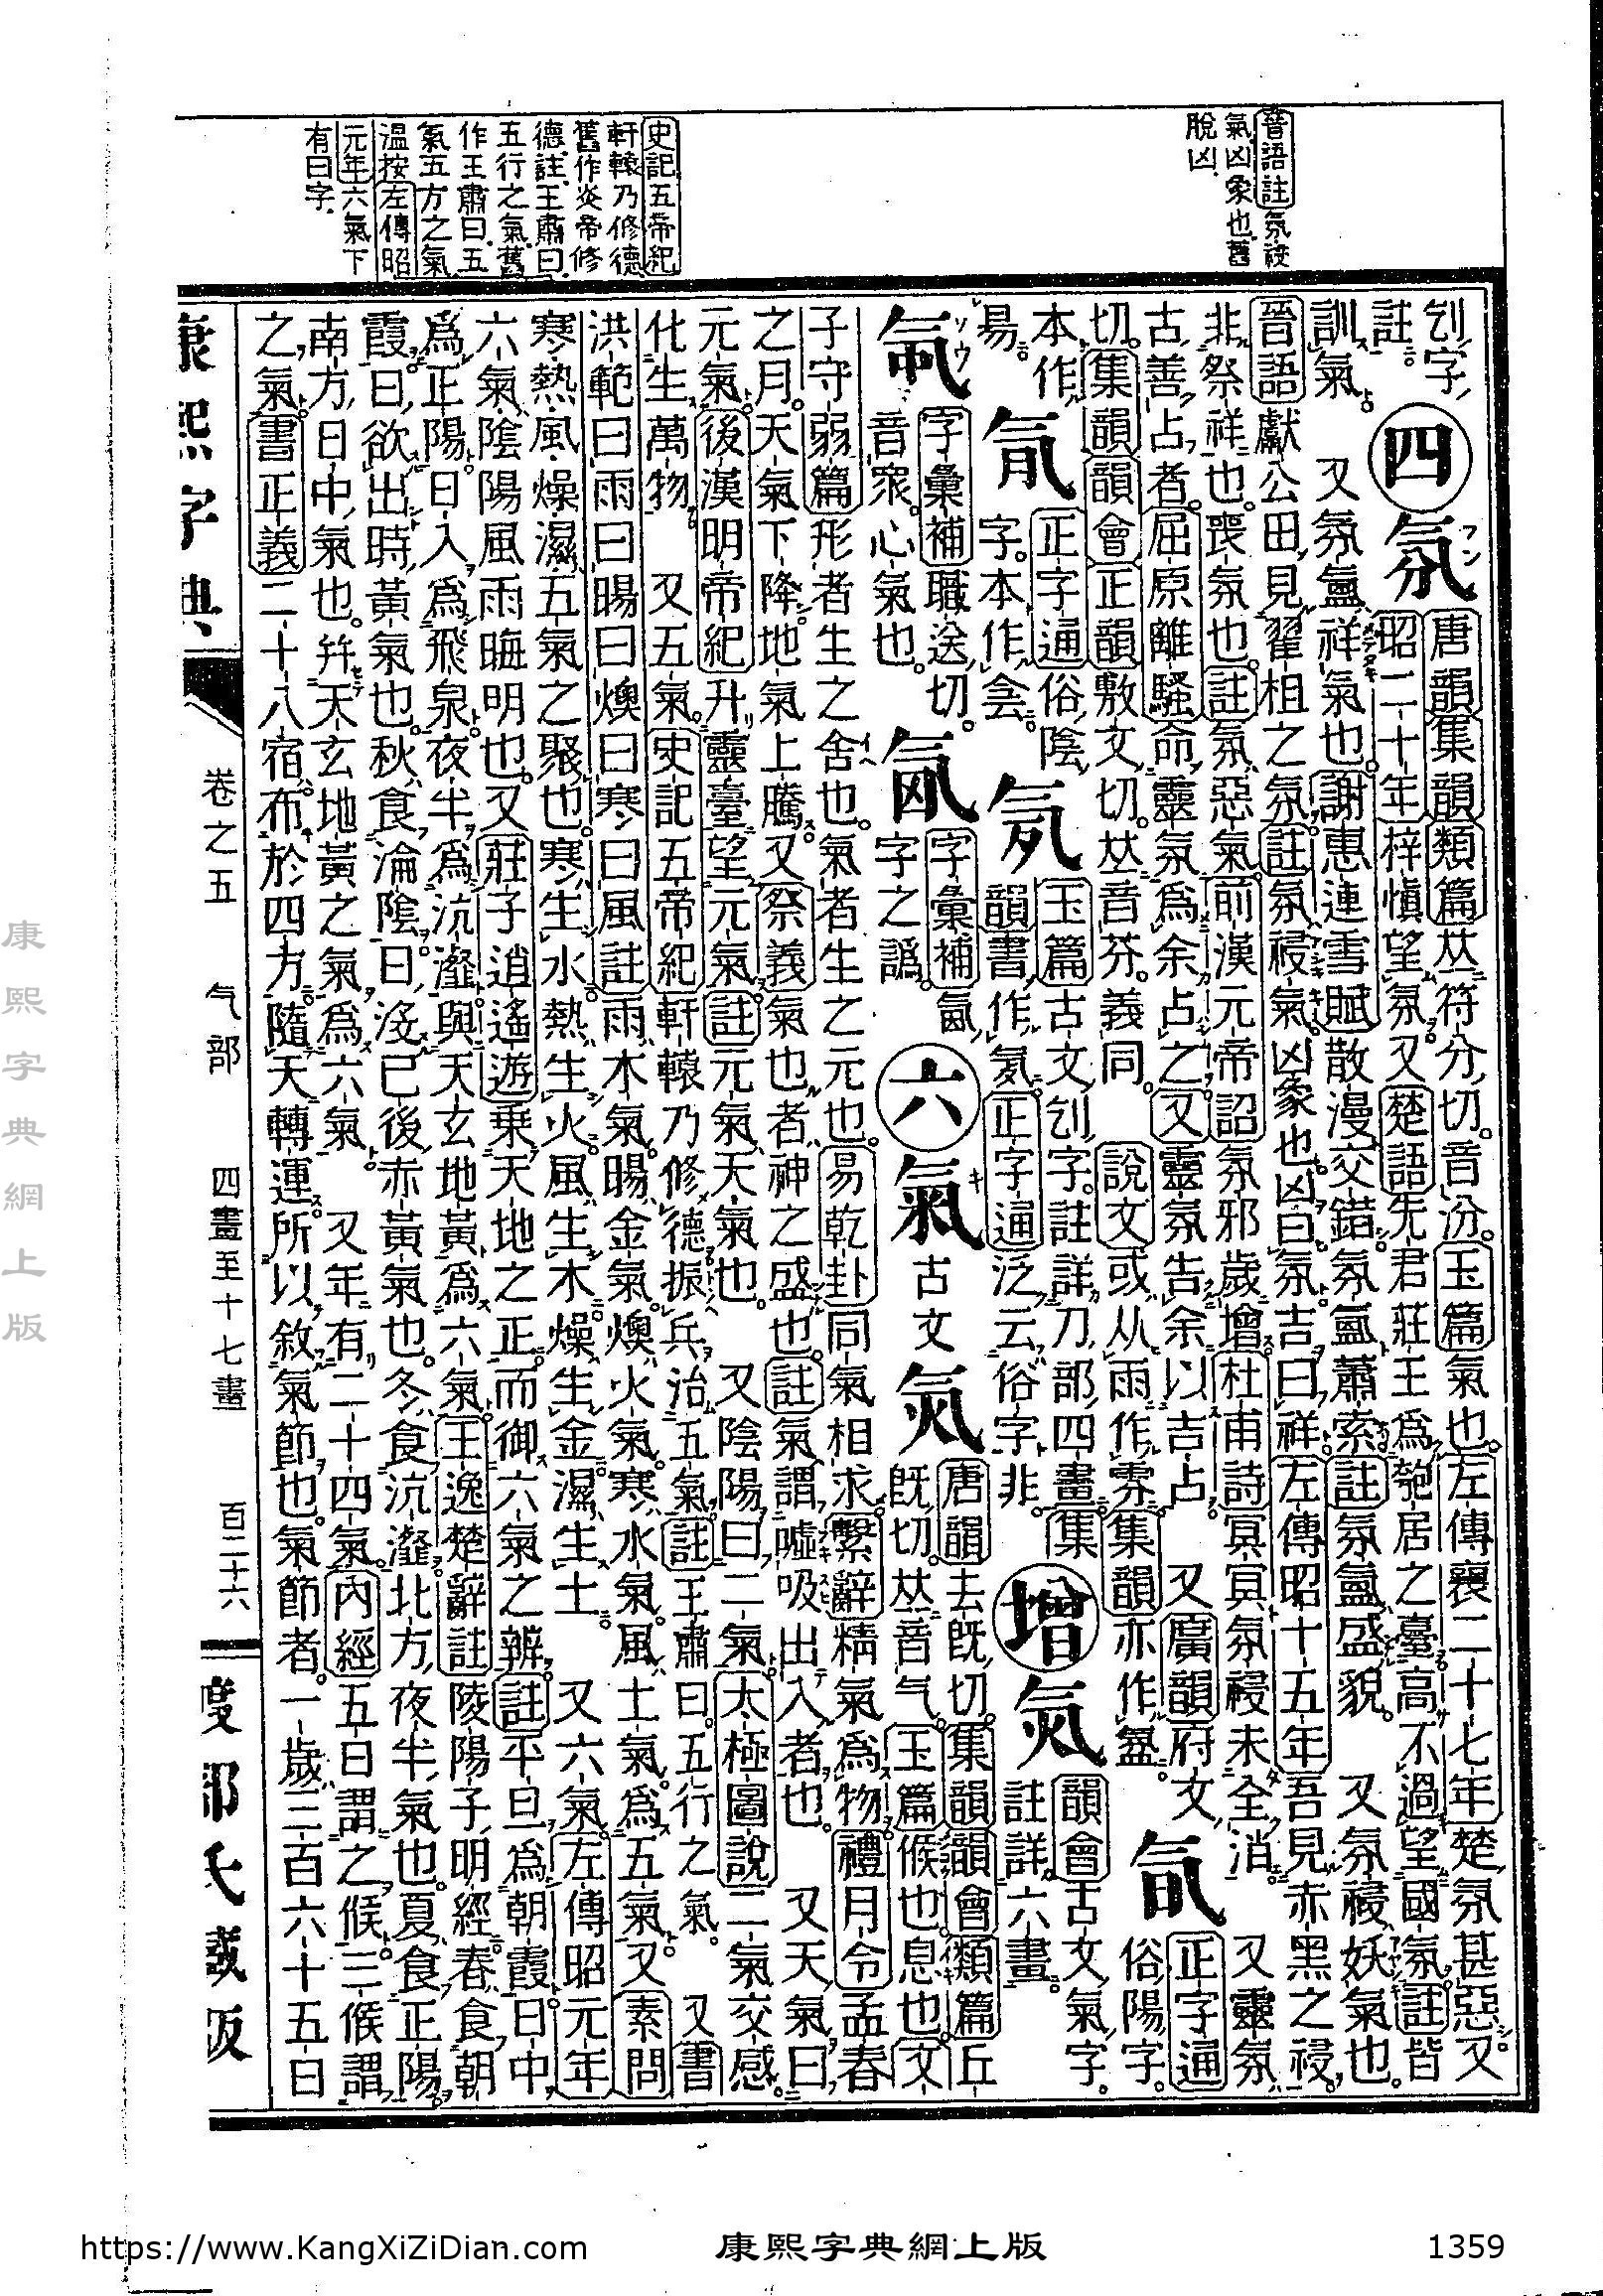 晉語註氛祲
氣凶象也舊
脫凶
史記五帝紀
軒轅乃修德
舊作炎帝修
德註王肅曰
五行之氣舊
作王肅曰五
氣五方之氣
溫按左傳昭
元年六氣下
有曰字
刉字
註
四
氛 フン
唐韻集韻類篇𠀤符分切音汾玉篇氣也左傳襄二十七年楚氛甚惡又
昭二十年梓慎望氛又楚語先君莊王爲匏居之臺高不過望國氛註皆
訓氣 又氛氳祥氣也謝惠連雪賦散漫交錯氛氳蕭索註氛氳盛貌 又氛祲妖氣也
晉語獻公田見翟柤之氛註氛祲氣凶象也凶曰氛吉曰祥左傳昭十五年吾見赤黑之祲
非祭祥也喪氛也註氛惡氣前漢元帝詔氛邪歲增杜甫詩冥冥氛祲未全消 又靈氛
古善占者屈原離騷命靈氛爲余占之又靈氛告余以吉占 又廣韻府文
切集韻韻會正韻敷文切𠀤音芬義同 說文或从雨作雰集韻亦作
氜
正字通
俗陽字
本作
昜
正字通俗陰
字本作侌
玉篇古文刉字註詳刀部四畫集
韻書作正字通泛云俗字非
增
炁
韻會古文氣字
註詳六畫
ソウ
字彙補職送切
音眾心氣也
字彙補氤
字之譌
六
氣 キ
古文
炁
唐韻去旣切集韻韻會類篇丘
旣切𠀤音气玉篇候也息也文
子守弱篇形者生之舍也氣者生之元也易乾卦同氣相求繫辭精氣爲物禮月令孟春
之月天氣下降地氣上騰又祭義氣也者神之盛也註氣謂噓吸出入者也 又天氣曰
元氣後漢明帝紀升靈臺望元氣註元氣天氣也 又陰陽曰二氣太極圖說二氣交感
化生萬物 又五氣史記五帝紀軒轅乃修德振兵治五氣註王肅曰五行之氣 又書
洪範曰雨曰暘曰燠曰寒曰風註雨木氣暘金氣燠火氣寒水氣風土氣爲五氣又素問
寒熱風燥濕五氣之聚也寒生水熱生火風生木燥生金濕生土 又六氣左傳昭元年
六氣陰陽風雨晦明也又莊子逍遙遊乗天地之正而御六氣之辨註平旦爲朝霞日中
爲正陽日入爲飛泉夜半爲沆瀣與天玄地黃爲六氣王逸楚辭註陵陽子明經春食朝
霞日欲出時黃氣也秋食淪陰日沒已後赤黃氣也冬食沆瀣北方夜半氣也夏食正陽
南方日中氣也幷天玄地黃之氣爲六氣 又年有二十四氣內經五日謂之候三候謂
之氣書正義二十八宿布於四方隨天轉運所以敘氣節也氣節者一歲三百六十五日
康熙字典
卷之五
气部
四畫至十七畫
百二十六
度部氏藏版
康熙字典網上版
https://www.KangXiZiDian.com
康熙字典網上版
1359